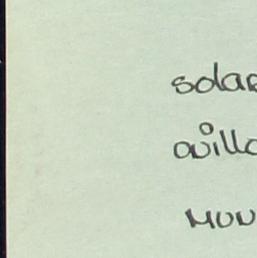 solar
avilla
MUN